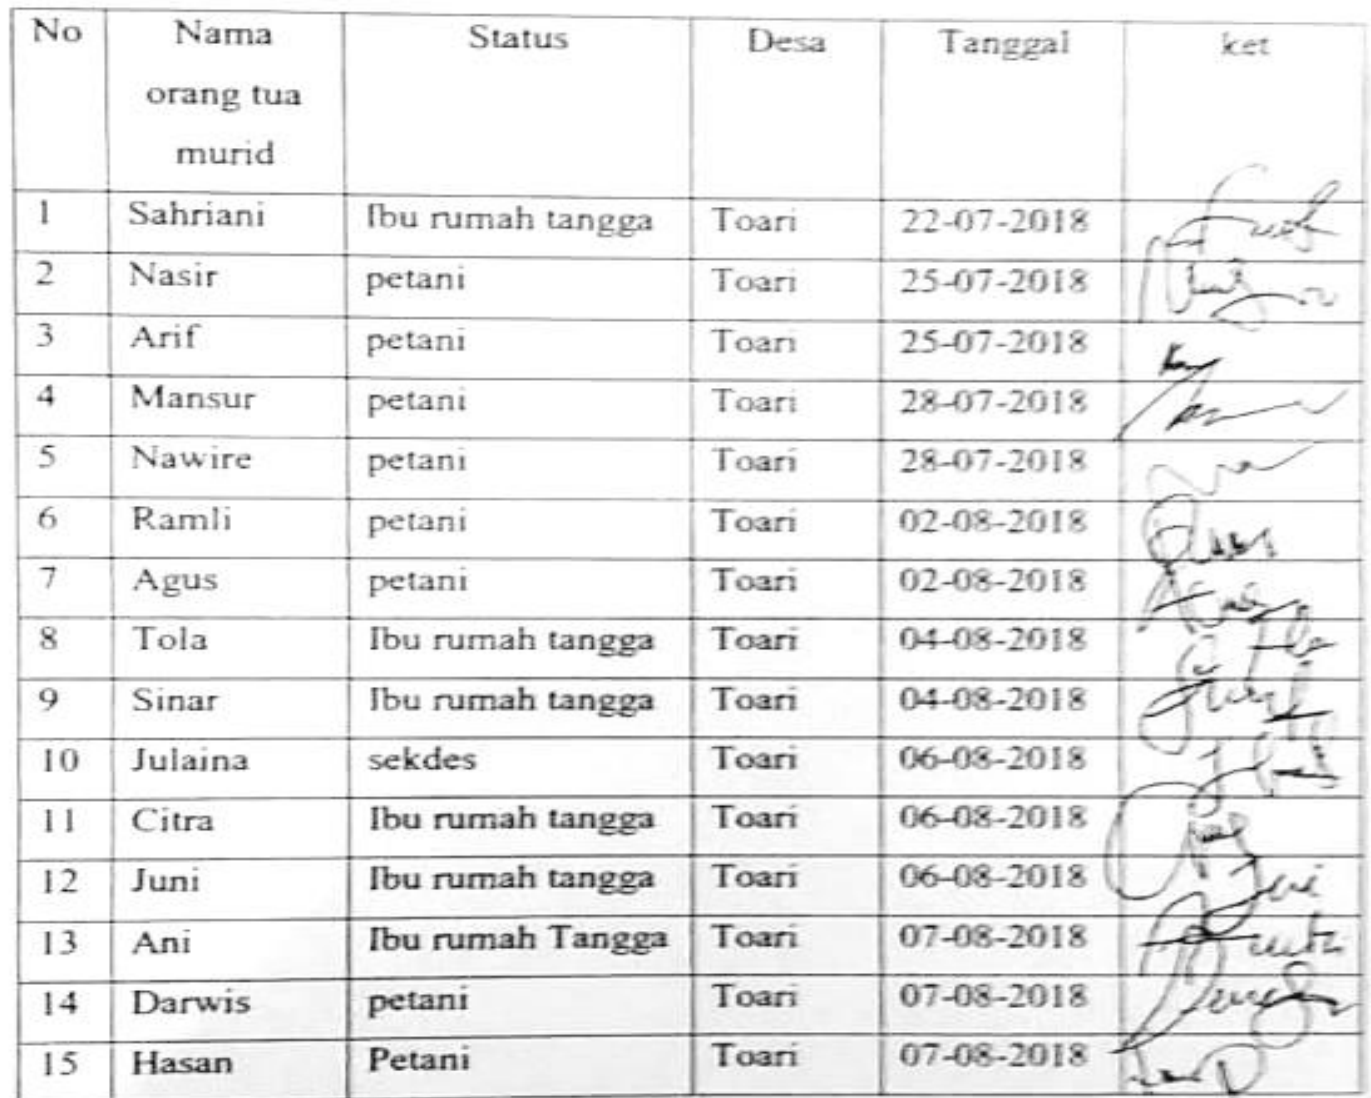 No Nama Status Desa Tanggal ket
orang tua
murid
1 Sahriani Ibu rumah tangga Toari 22-07-2018
2 Nasir petani Toari 25-07-2018
3 Arif petani Toari 25-07-2018
4 Mansur petani Toari 28-07-2018
5 Nawire petani Toari 28-07-2018
6 Ramli petani Toari 02-08-2018
7 Agus petani Toari 02-08-2018
8 Tola Ibu rumah tangga Toari 04-08-2018
9 Sinar Ibu rumah tangga Toari 04-08-2018
10 Julaina sekdes Toari 06-08-2018
11 Citra Ibu rumah tangga Toari 06-08-2018
12 Juni Ibu rumah tangga Toari 06-08-2018
13 Ani Ibu rumah Tangga Toari 07-08-2018
14 Darwis petani Toari 07-08-2018
15 Hasan Petani Toari 07-08-2018